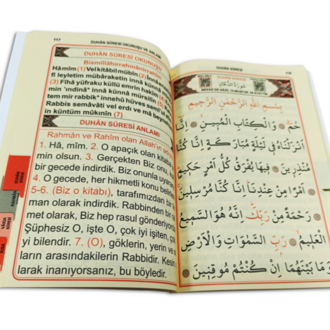 DUHÂN SÛRESİ OKUNUŞU VE ANLAMI
DUHÂN SÛRESİ OKUNUŞU
Bismillâhirrahmânirrahîm
Hâ mîm (1) Vel kitâbil mübîn (2)
fî leyletim mübâraketin innâ künnâ
Fîhâ yüfraku küllü emrin hakîm (4)
min 'ındinâ innâ künnâ mürsilîn
tem mir rabbik* innehû hüves semî
Rabbis semâvâti vel erdı ve mâ
in küntüm mûkınîn (7)
DUHÂN SÛRESİ ANLAMI
Rahmân ve Rahîm olan Allah'ın
1. Hâ, mîm. 2. O apaçık olan kitaba
min olsun. 3. Gerçekten Biz onu
bir gecede indirdik. Biz onunla
4. O gecede, her hikmetli konu
5-6. (Biz o kitabı), tarafımızdan
man olarak indirdik. Rabbinden bir
met olarak, Biz hep rasul gönderiyo
Şüphesiz O, işte O, çok iyi işiten, ço
yi bilendir. 7. (O), göklerin, yerin ve
ların arasındakilerin Rabbidir. Kesin
larak inanıyorsanız, bu böyledir.
DUHÂN SÛRESİ
بِسْمِ اللّٰهِ الرَّحْمٰنِ الرَّحِيمِ
حٰمٓ وَالْكِتَابِ الْمُبِينِ اِنَّٓا
اَنْزَلْنَاهُ فِي لَيْلَةٍ مُبَارَكَةٍ اِنَّا كُنَّا
مُنْذِرِينَ فِيهَا يُفْرَقُ كُلُّ اَمْرٍ حَكِيمٍ
اَمْرًا مِنْ عِنْدِنَا اِنَّا كُنَّا مُرْسِلِينَ
رَحْمَةً مِنْ رَبِّكَ اِنَّهُ هُوَ السَّمِيعُ
الْعَلِيمُ رَبِّ السَّمٰوَاتِ وَالْاَرْضِ
وَمَا بَيْنَهُمَا اِنْ كُنْتُمْ مُوقِنِينَ